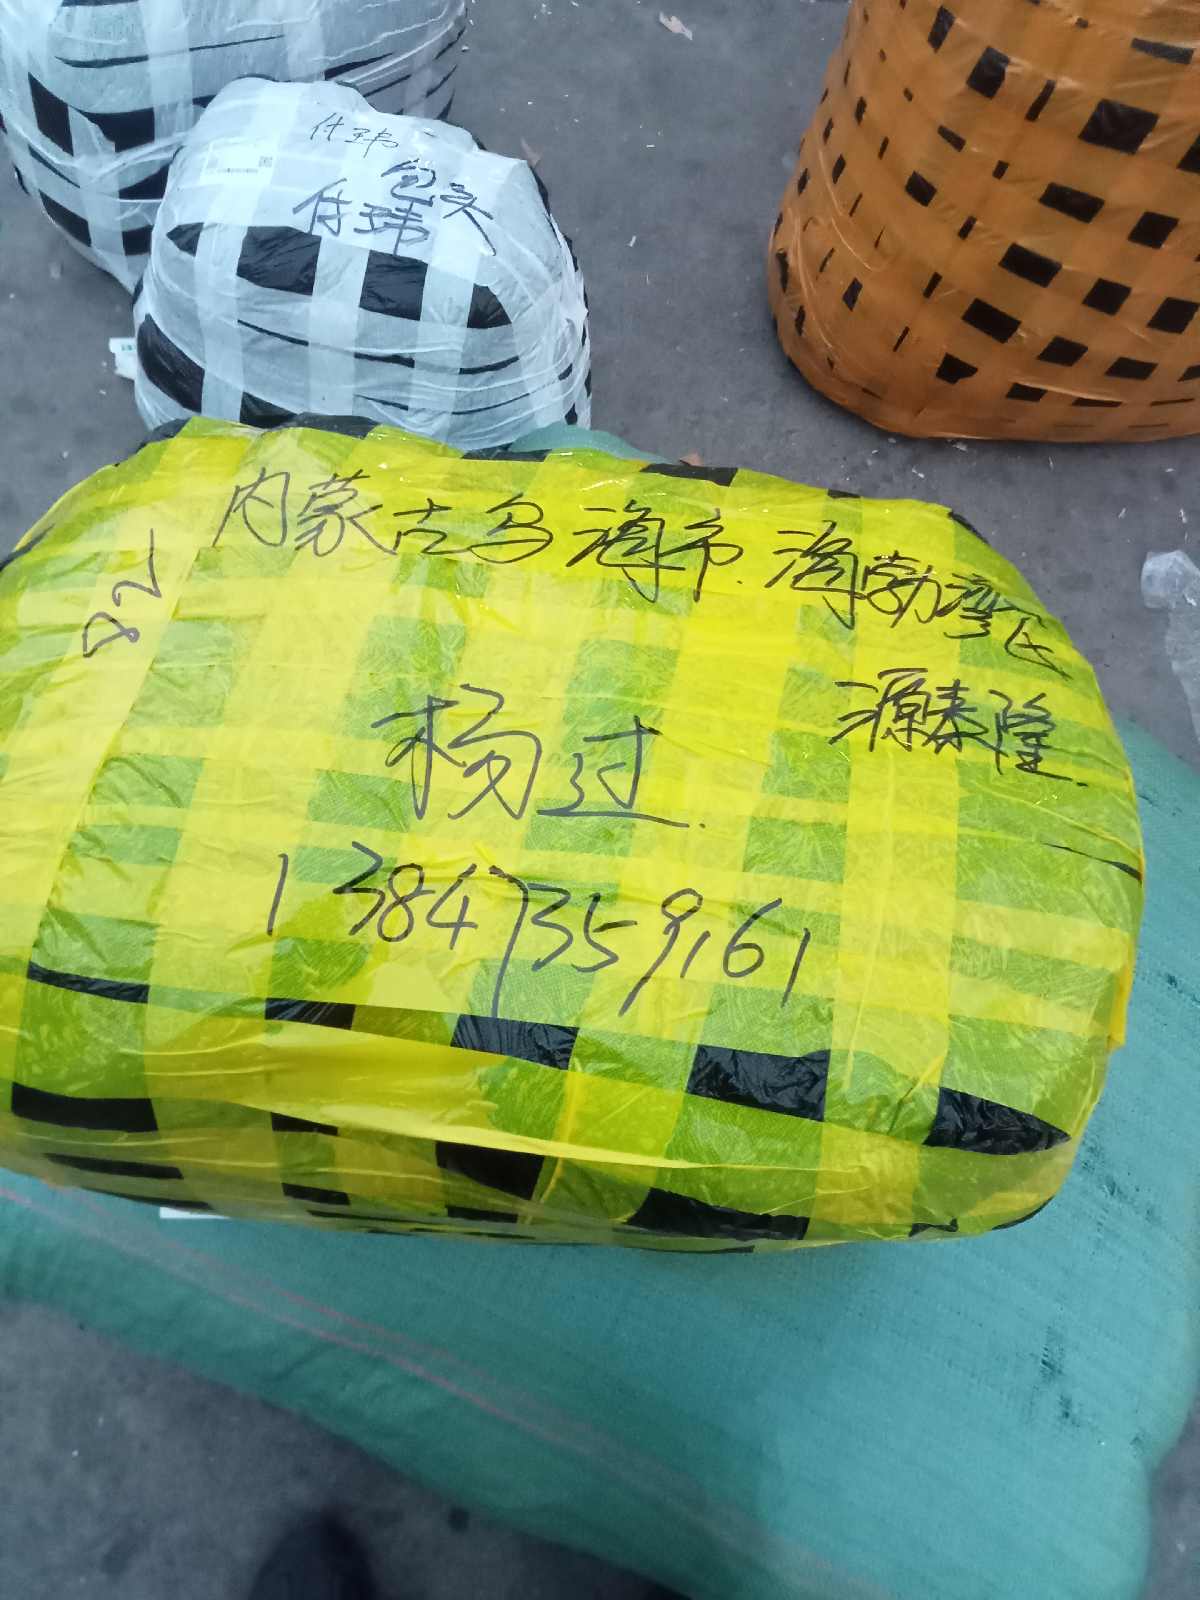 什玮
包头
付玮
内蒙古乌海市.海勃湾区
82
源泰隆
杨过.
13847359161